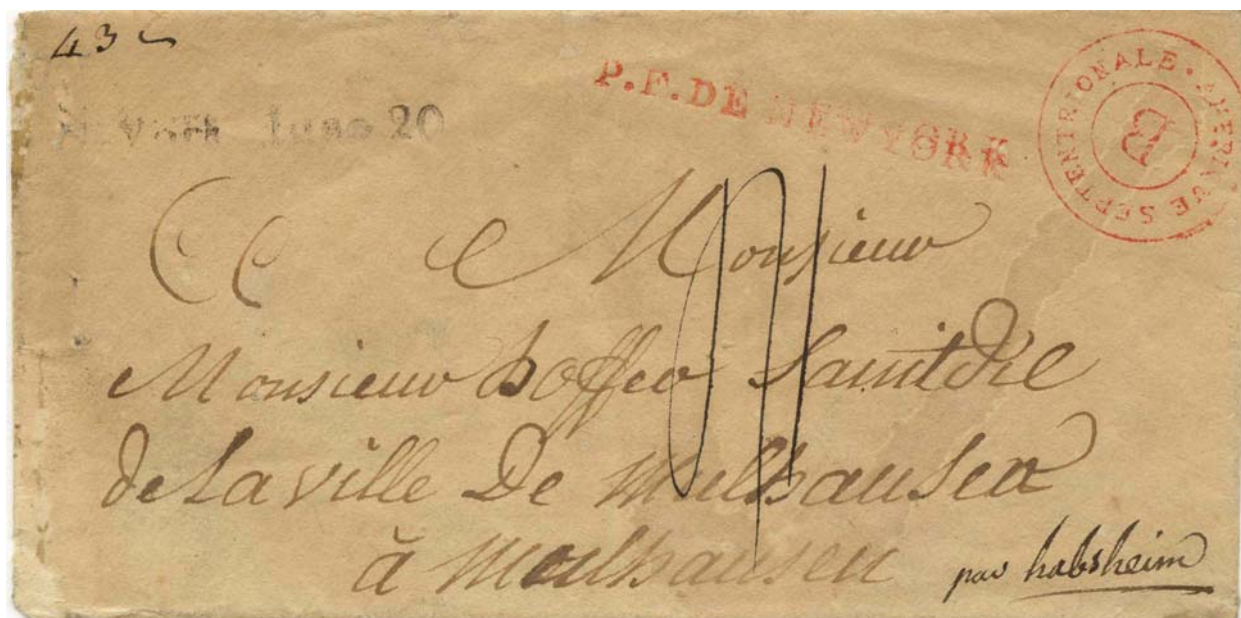 43
June 20
P.F. DE NEW YORK
AMERIQUE SEPTENTRIONALE.
B
Monsieur
Monsieur
de La ville De Mulhausen
à Mulhausen
par habsheim